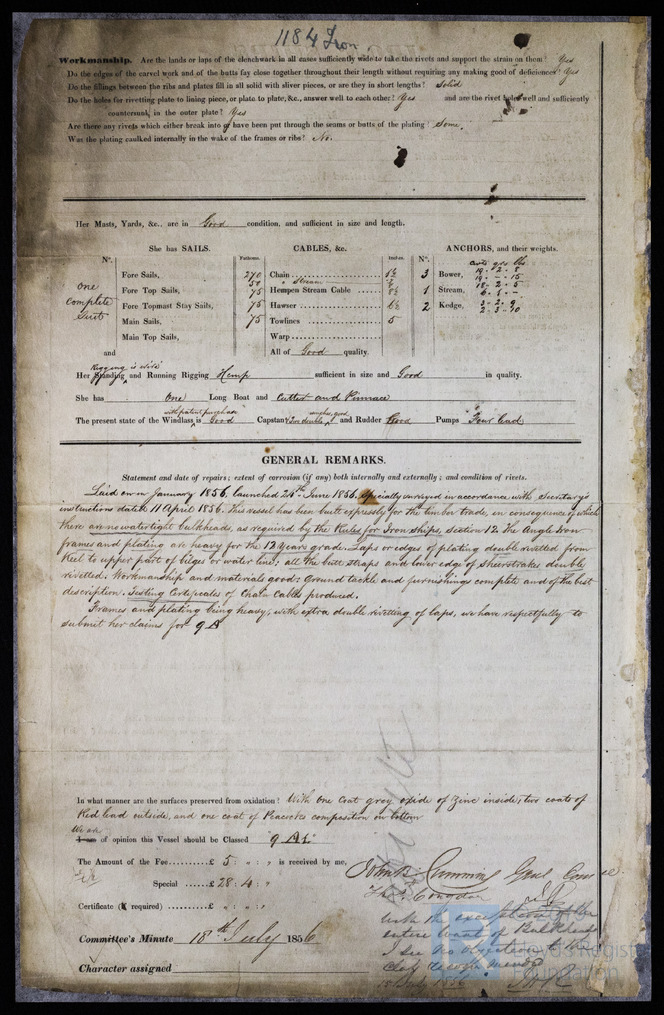 1184 Iron
Workmanship. Are the lands or laps of the clenchwork in all cases sufficiently wide to take the rivets and support the strain on them? Yes
Do the edges of the carvel work and of the butts fay close together throughout their length without requiring any making good of deficiences? Yes
Do the fillings between the ribs and plates fill in all solid with sliver pieces, or are they in short lengths? Solid
Do the holes for rivetting plate to lining piece, or plate to plate, &c., answer well to each other? Yes and are the rivet holes well and sufficiently
countersunk in the outer plate? Yes
Are there any rivets which either break into or have been put through the seams or butts of the plating? Some.
Was the plating caulked internally in the wake of the frames or ribs? No.
Her Masts, Yards, &c., are in Good condition, and sufficient in size and length.
She has SAILS. CABLES, &c. ANCHORS, and their weights.
N°. Fathoms. Inches. N°. cwts qrs lbs.
Fore Sails, 270 Chain 3 Bower, 19 - 2 - 8
19 - - - 15
18 - 2 - 5
One Fore Top Sails, 75 Hempen Stream Cable 1 Stream,
Complete Fore Topmast Stay Sails, 75 Hawser 2 Kedge, 3 - 2 - 9
Suit Main Sails, 75 Towlines 5 2 - 3 - 10
Main Top Sails, Warp
and All of Good quality
Rigging is wire
Her Standing and Running Rigging Hemp sufficient in size and Good in quality.
She has One Long Boat and Cutter and Pinnace
with patent purchase
The present state of the Windlass is Good Capstan and Rudder Good Pumps Four lead.
GENERAL REMARKS.
Statement and date of repairs; extent of corrosion (if any) both internally and externally; and condition of rivets.
Laid on in January 1856, launched 24th June 1856. Specially surveyed in accordance with Secretary's
instructions dated 11 April 1856. This vessel has been built expressly for the timber trade, in consequence of which
there are no watertight bulkheads, as required by the Rules for Iron ships, section 12. The Angle Iron
frames and plating are heavy for the 12 years grade. Laps or edges of plating double rivetted from
Keel to upper part of bilges or water line; all the butt straps and lower edge of Sheerstrakes double
rivetted. Workmanship and materials good: Ground tackle and furnishings complete and of the best
description. Testing Certificates of Chain Cables produced.
Frames and plating being heavy, with extra double rivetting of laps, we have respectfully to
submit her claims for 9 A
In what manner are the surfaces preserved from oxidation? With One Coat grey oxide of Zinc inside, two coats of
Red lead outside, and one coat of Peacocks composition on bottom
We are
I am of opinion this Vessel should be Classed 9 A1
The Amount of the Fee £ 5 : " : " is received by me,
Special £ 28 : 4 : "
Certificate (if required) £ " : " : "
With the exception of the
entire want of Bulkheads
I see no objection to the
Class recommended
Committee's Minute 18th July 1856
Character assigned
Lloyd's Register
Foundation